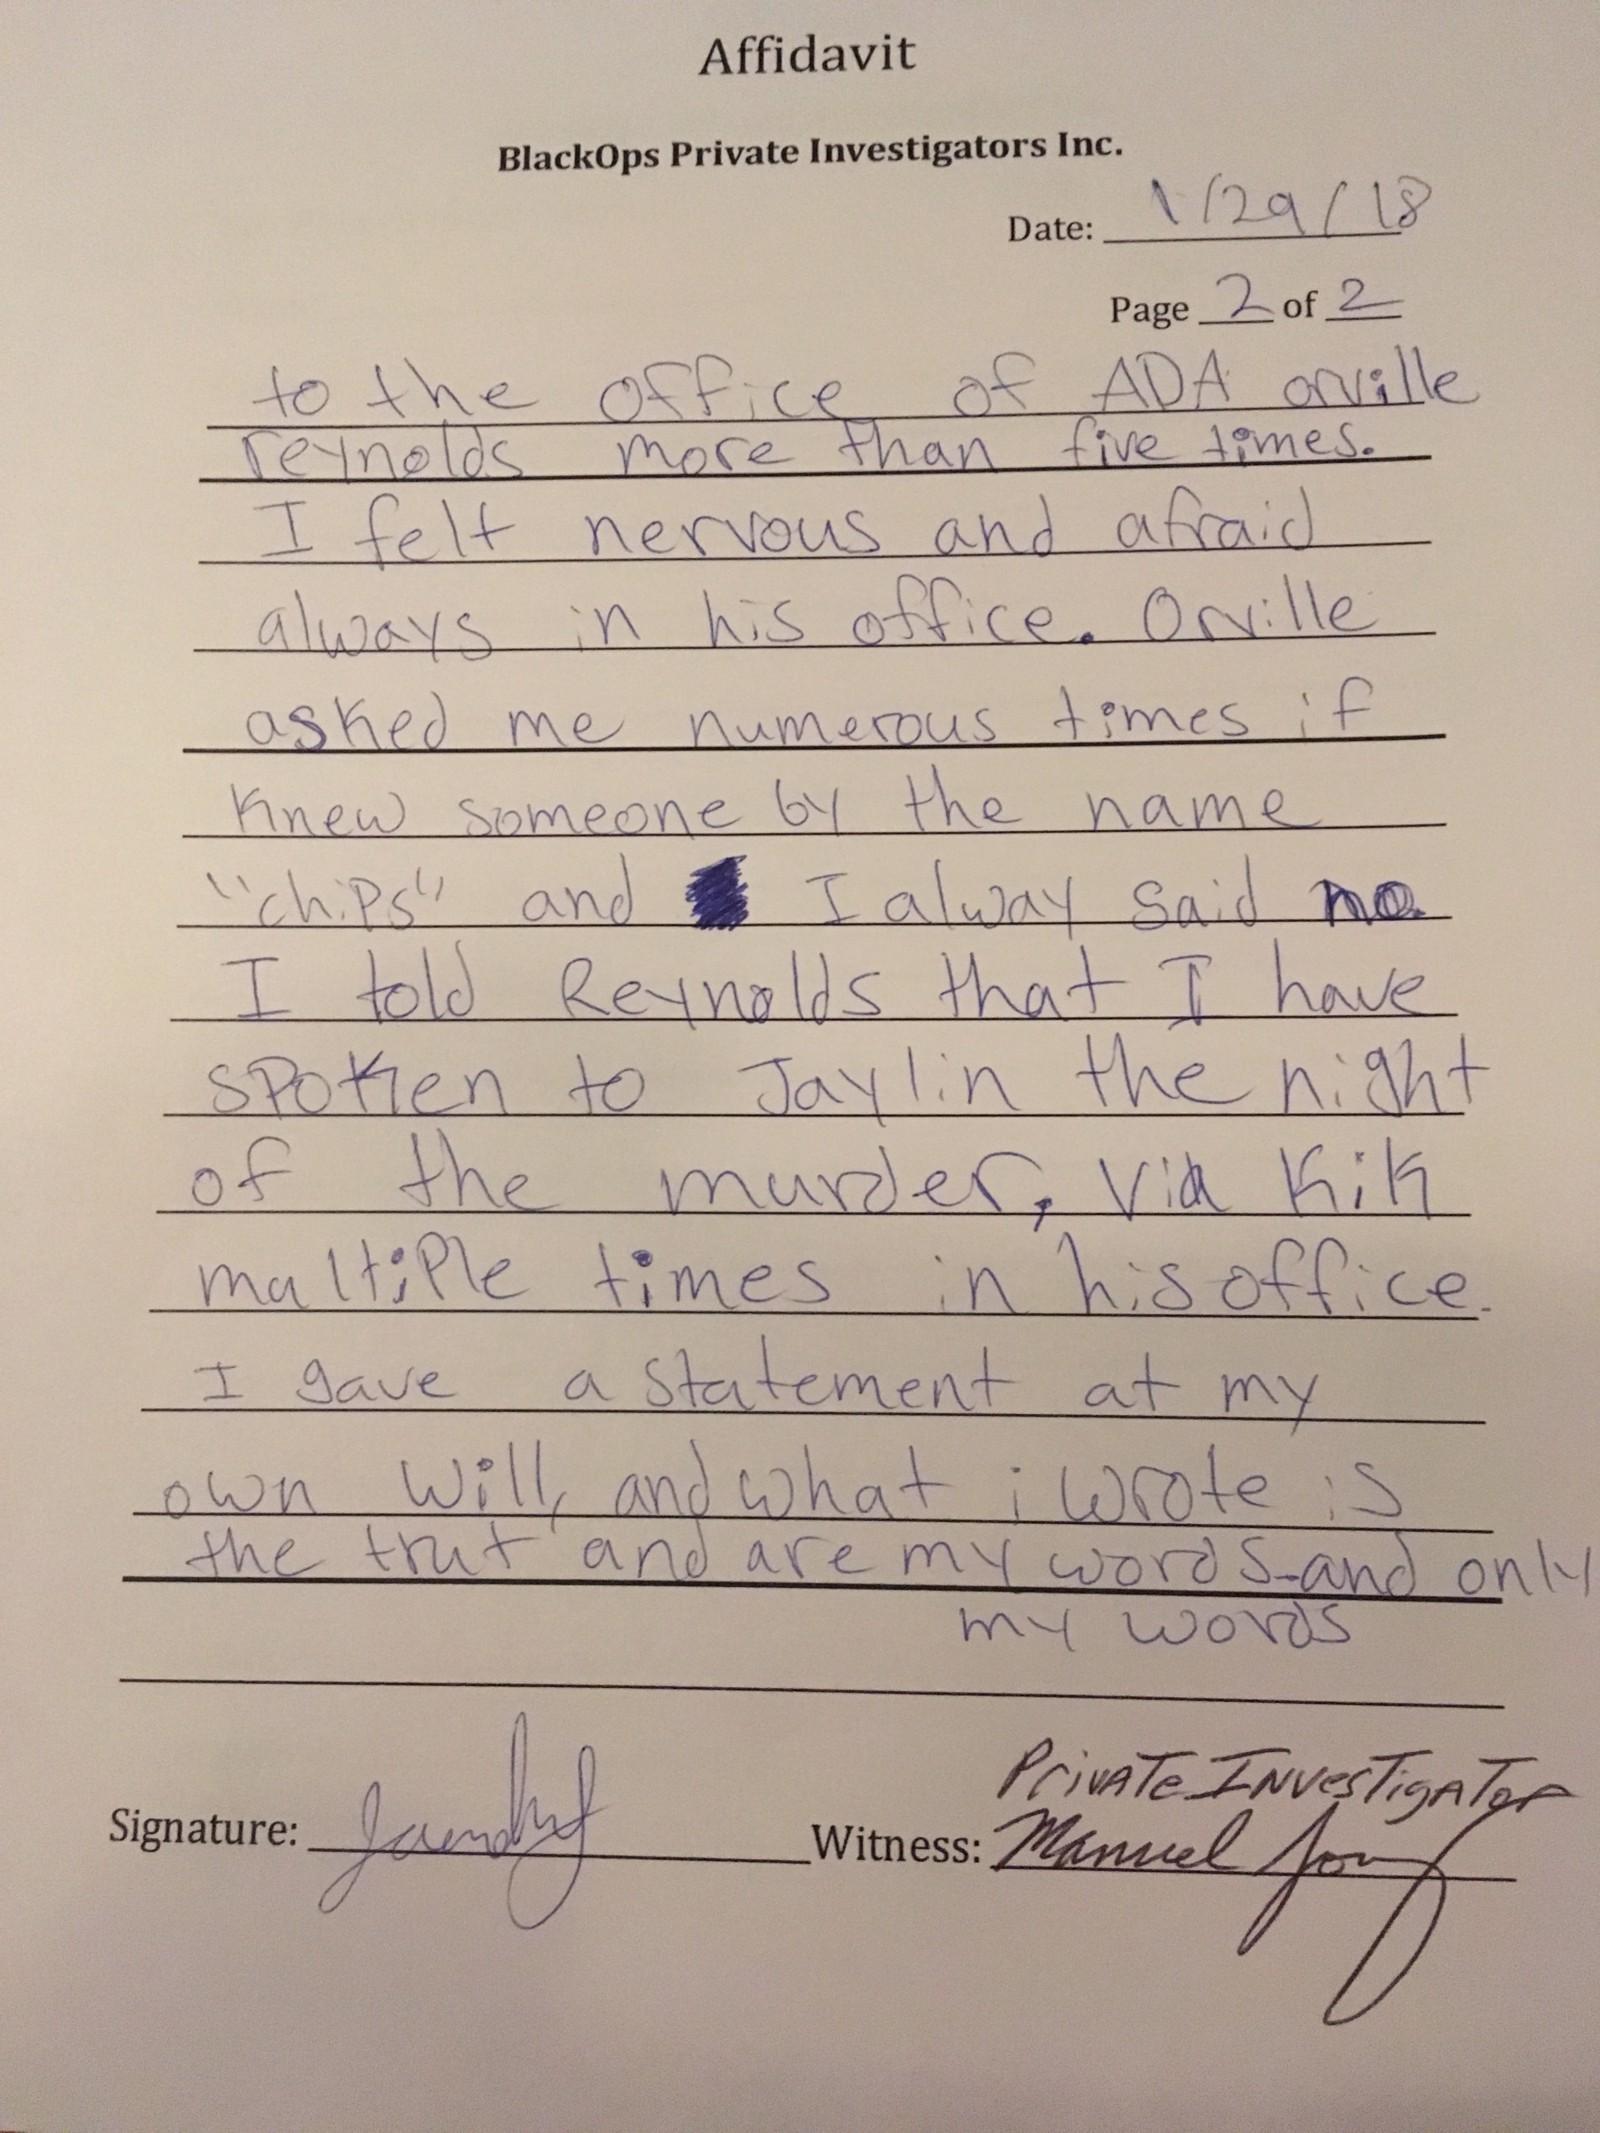 Affidavit
BlackOps Private Investigators Inc.
Date: 1/29/18
Page 2 of 2
to the office of ADA orville
reynolds more than five times.
I felt nervous and afraid
always in his office. Orville
asked me numerous times if
knew someone by the name
"chips" and I alway said no.
I told Reynolds that I have
spoken to Jaylin the night
of the murder, via Kik
multiple times in his office.
I gave a statement at my
own will, and what i wrote is
the trut and are my words and only
my words
Private Investigator
Signature: Witness: Manuel